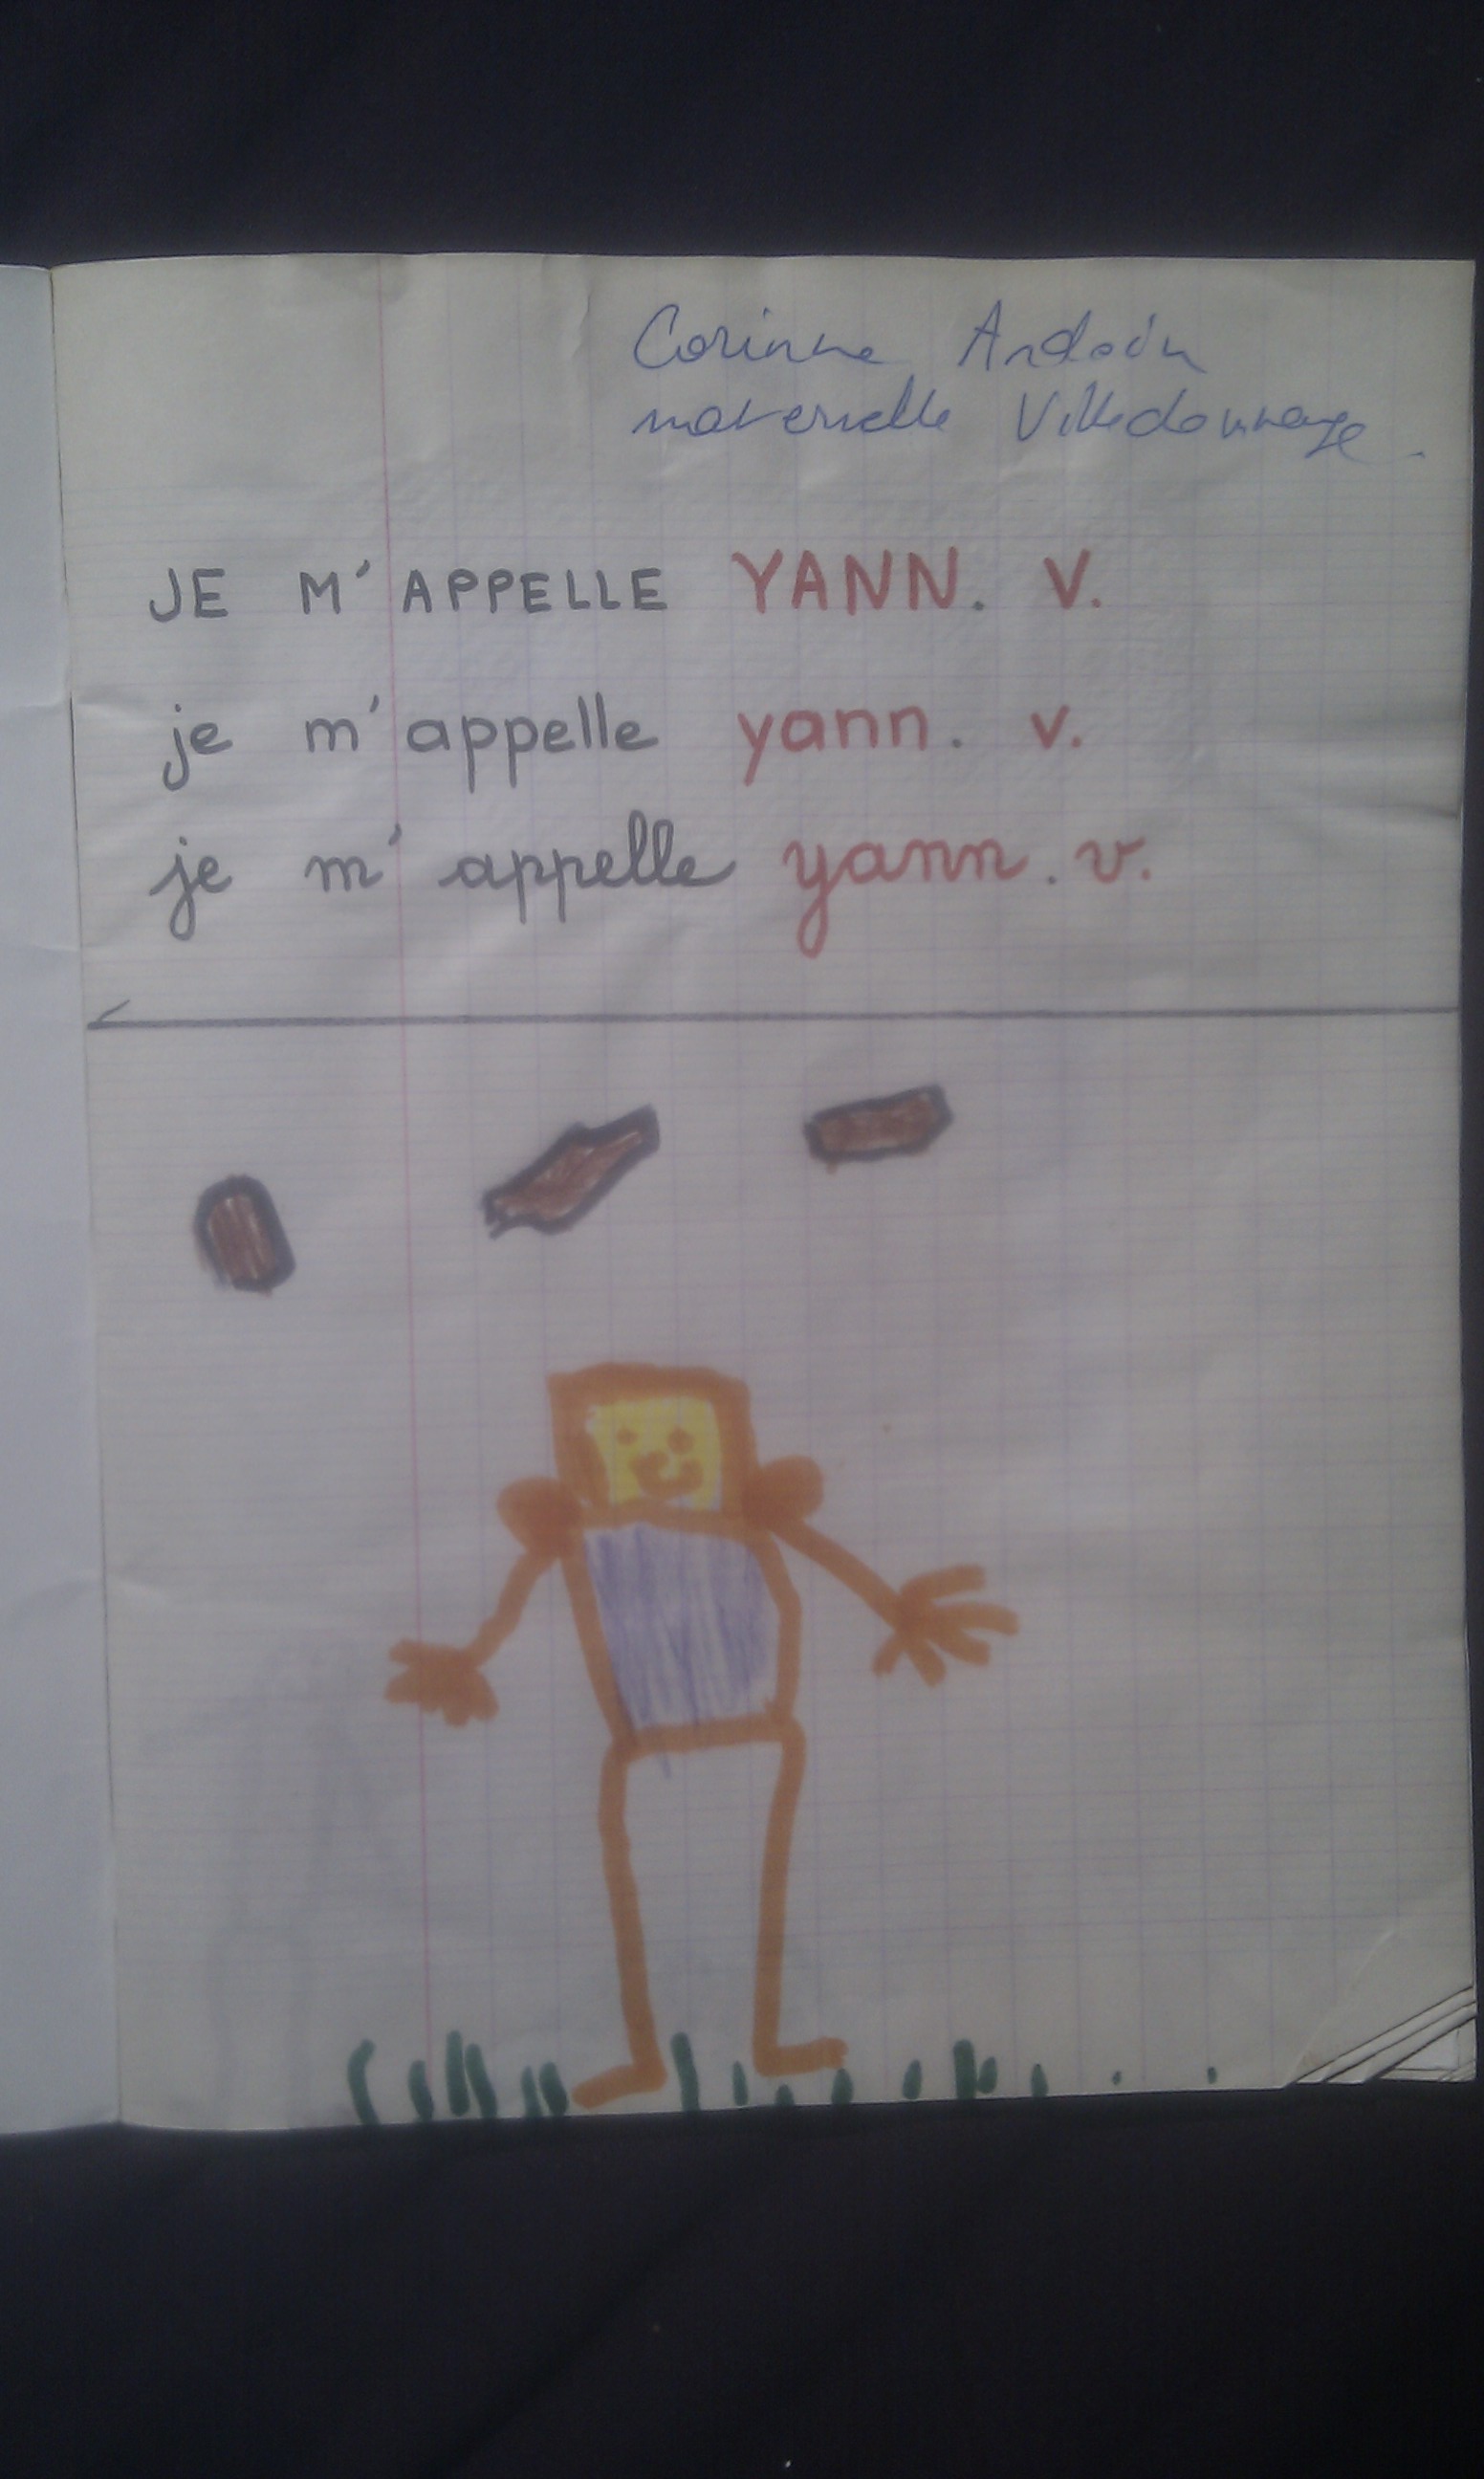 Corinne Andoin
maternelle Villedommage.
JE M'APPELLE YANN. V.
je m'appelle yann. v.
je m'appelle yann. v.